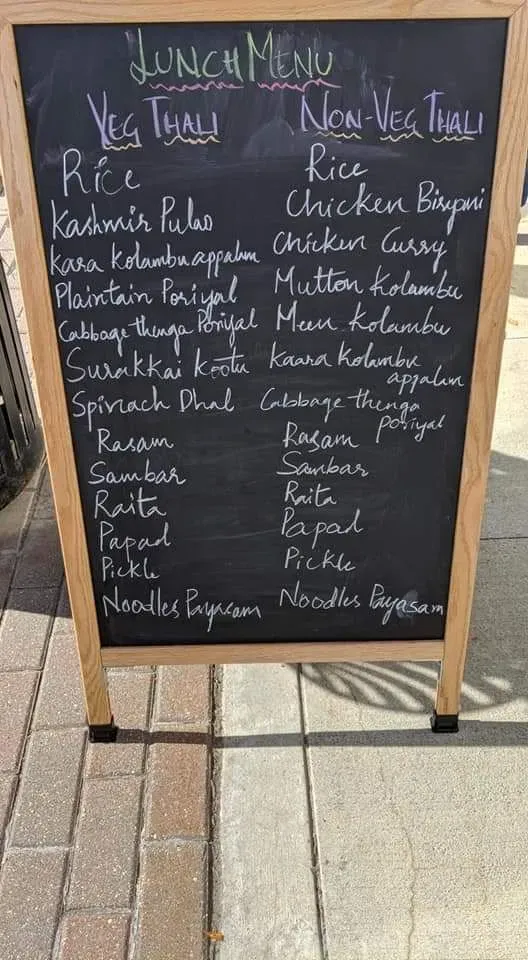 LUNCH MENU
VEG THALI
Rice
Kashmir Pulao
Kara Kolambu appalam
Plaintain Poriyal
Cabbage thenga Poriyal
Surakkai Kootu
Spinach Dhal
Rasam
Sambar
Raita
Papad
Pickle
Noodles Payasam
NON-VEG THALI
Rice
Chicken Biryani
Chicken Curry
Mutton Kolambu
Meen Kolambu
Kaara Kolambu
appalam
Cabbage thenga
Poriyal
Rasam
Sambar
Raita
Papad
Pickle
Noodles Payasam